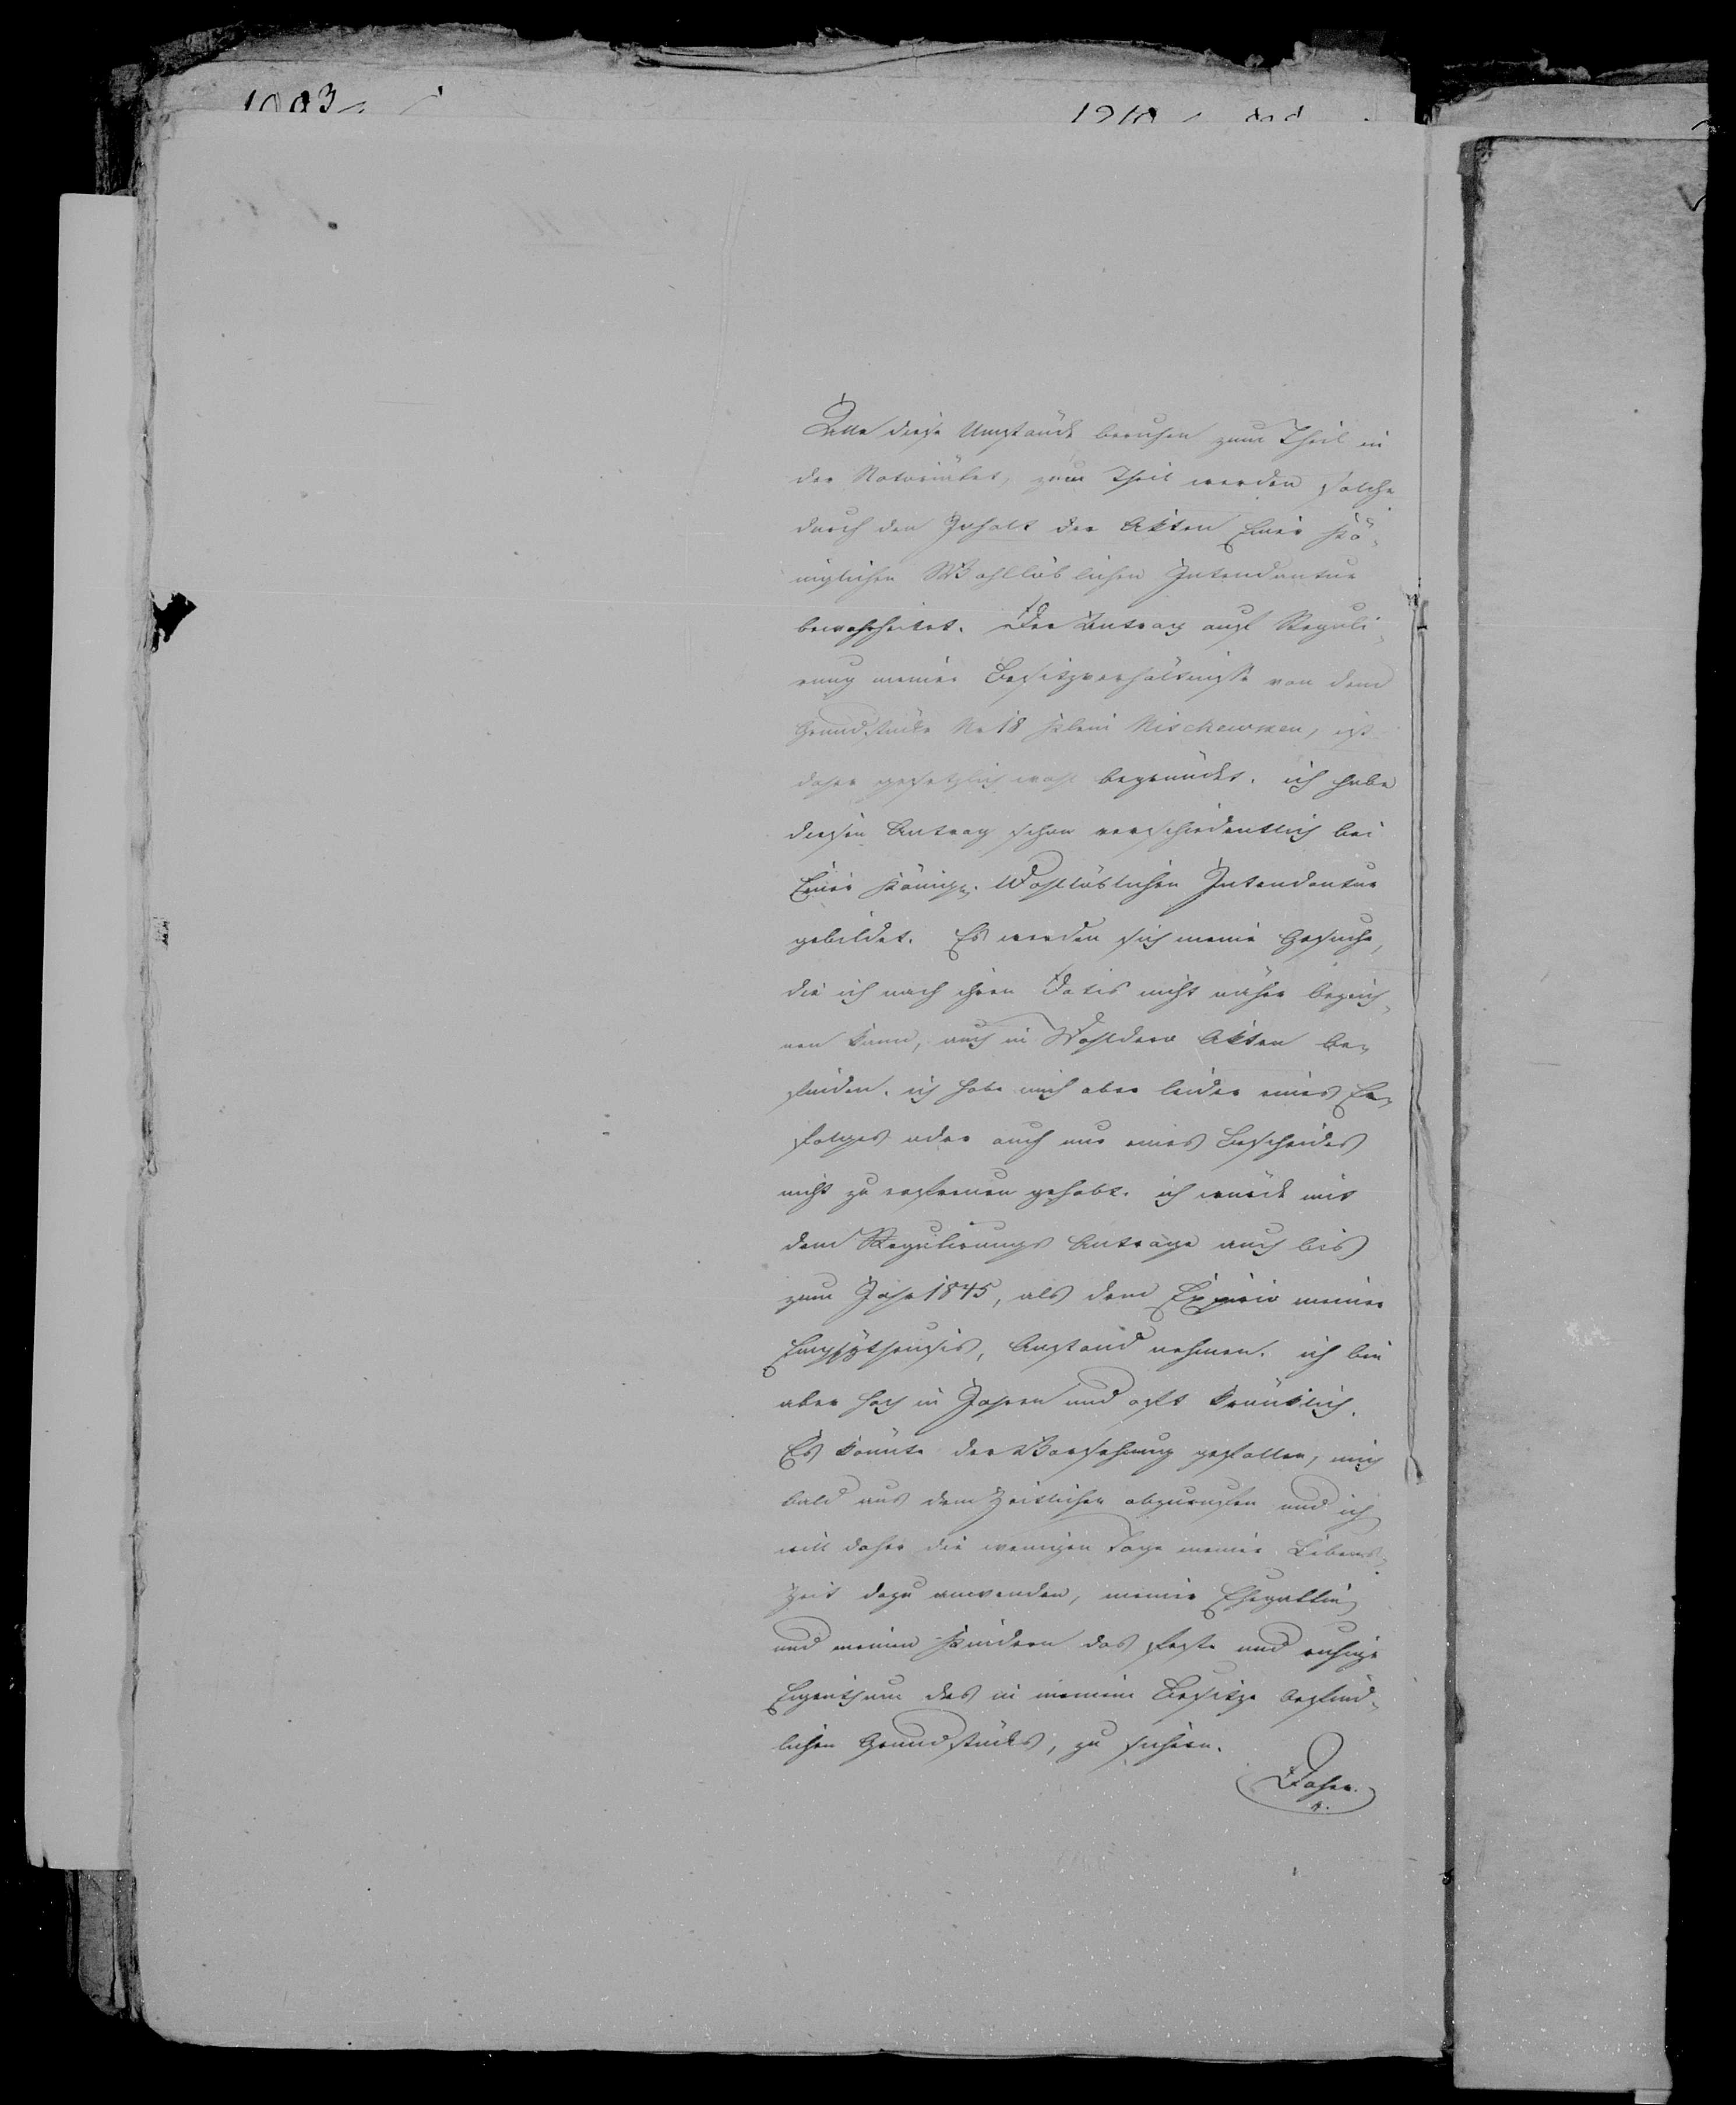 Alle diese Umstände beruhen zum Theil in
der Notorietät, zum Theil werden solche
durch den Inhalt der Akten Einer Kö-
niglichen Wohllöblichen Intendantur
bewahrheitet. Der Antrag auf Reguli-
rung meiner Besitzverhältnisse von dem
Grundstücke No 18 Klein Nischewken, ist
daher gesetzlich wohl begründet. ich habe
diesen Antrag schon verschiedentlich bei
Einer Königl. Wohllöblichen Intendantur
gebildet. Es werden sich meine Gesuche,
die ich nach ihren Datis nicht näher bezeich-
nen kann, auch in Wohldero Akten be-
finden. ich habe mich aber leider eines Er-
folges oder auch nur eines Bescheides
nicht zu erfreuen gehabt. ich würde mit
dem Regulirungs Antrage auch bis
zum Jahr 1845, als dem Expirio meiner
Emphytheusis, Anstand nehmen. ich bin
aber hoch in Jahren und oft kränklich.
Es könnte der Vorsehung gefallen, mich
bald aus dem Zeitlichen abzurufen und ich
will daher die wenigen Tage meiner Lebens-
zeit dazu anwenden, meiner Ehegattin
und meinen Kindern das feste und ruhige
Eigenthum des in meinem Besitze befind-
lichen Grundstücks, zu sichern.
Daher